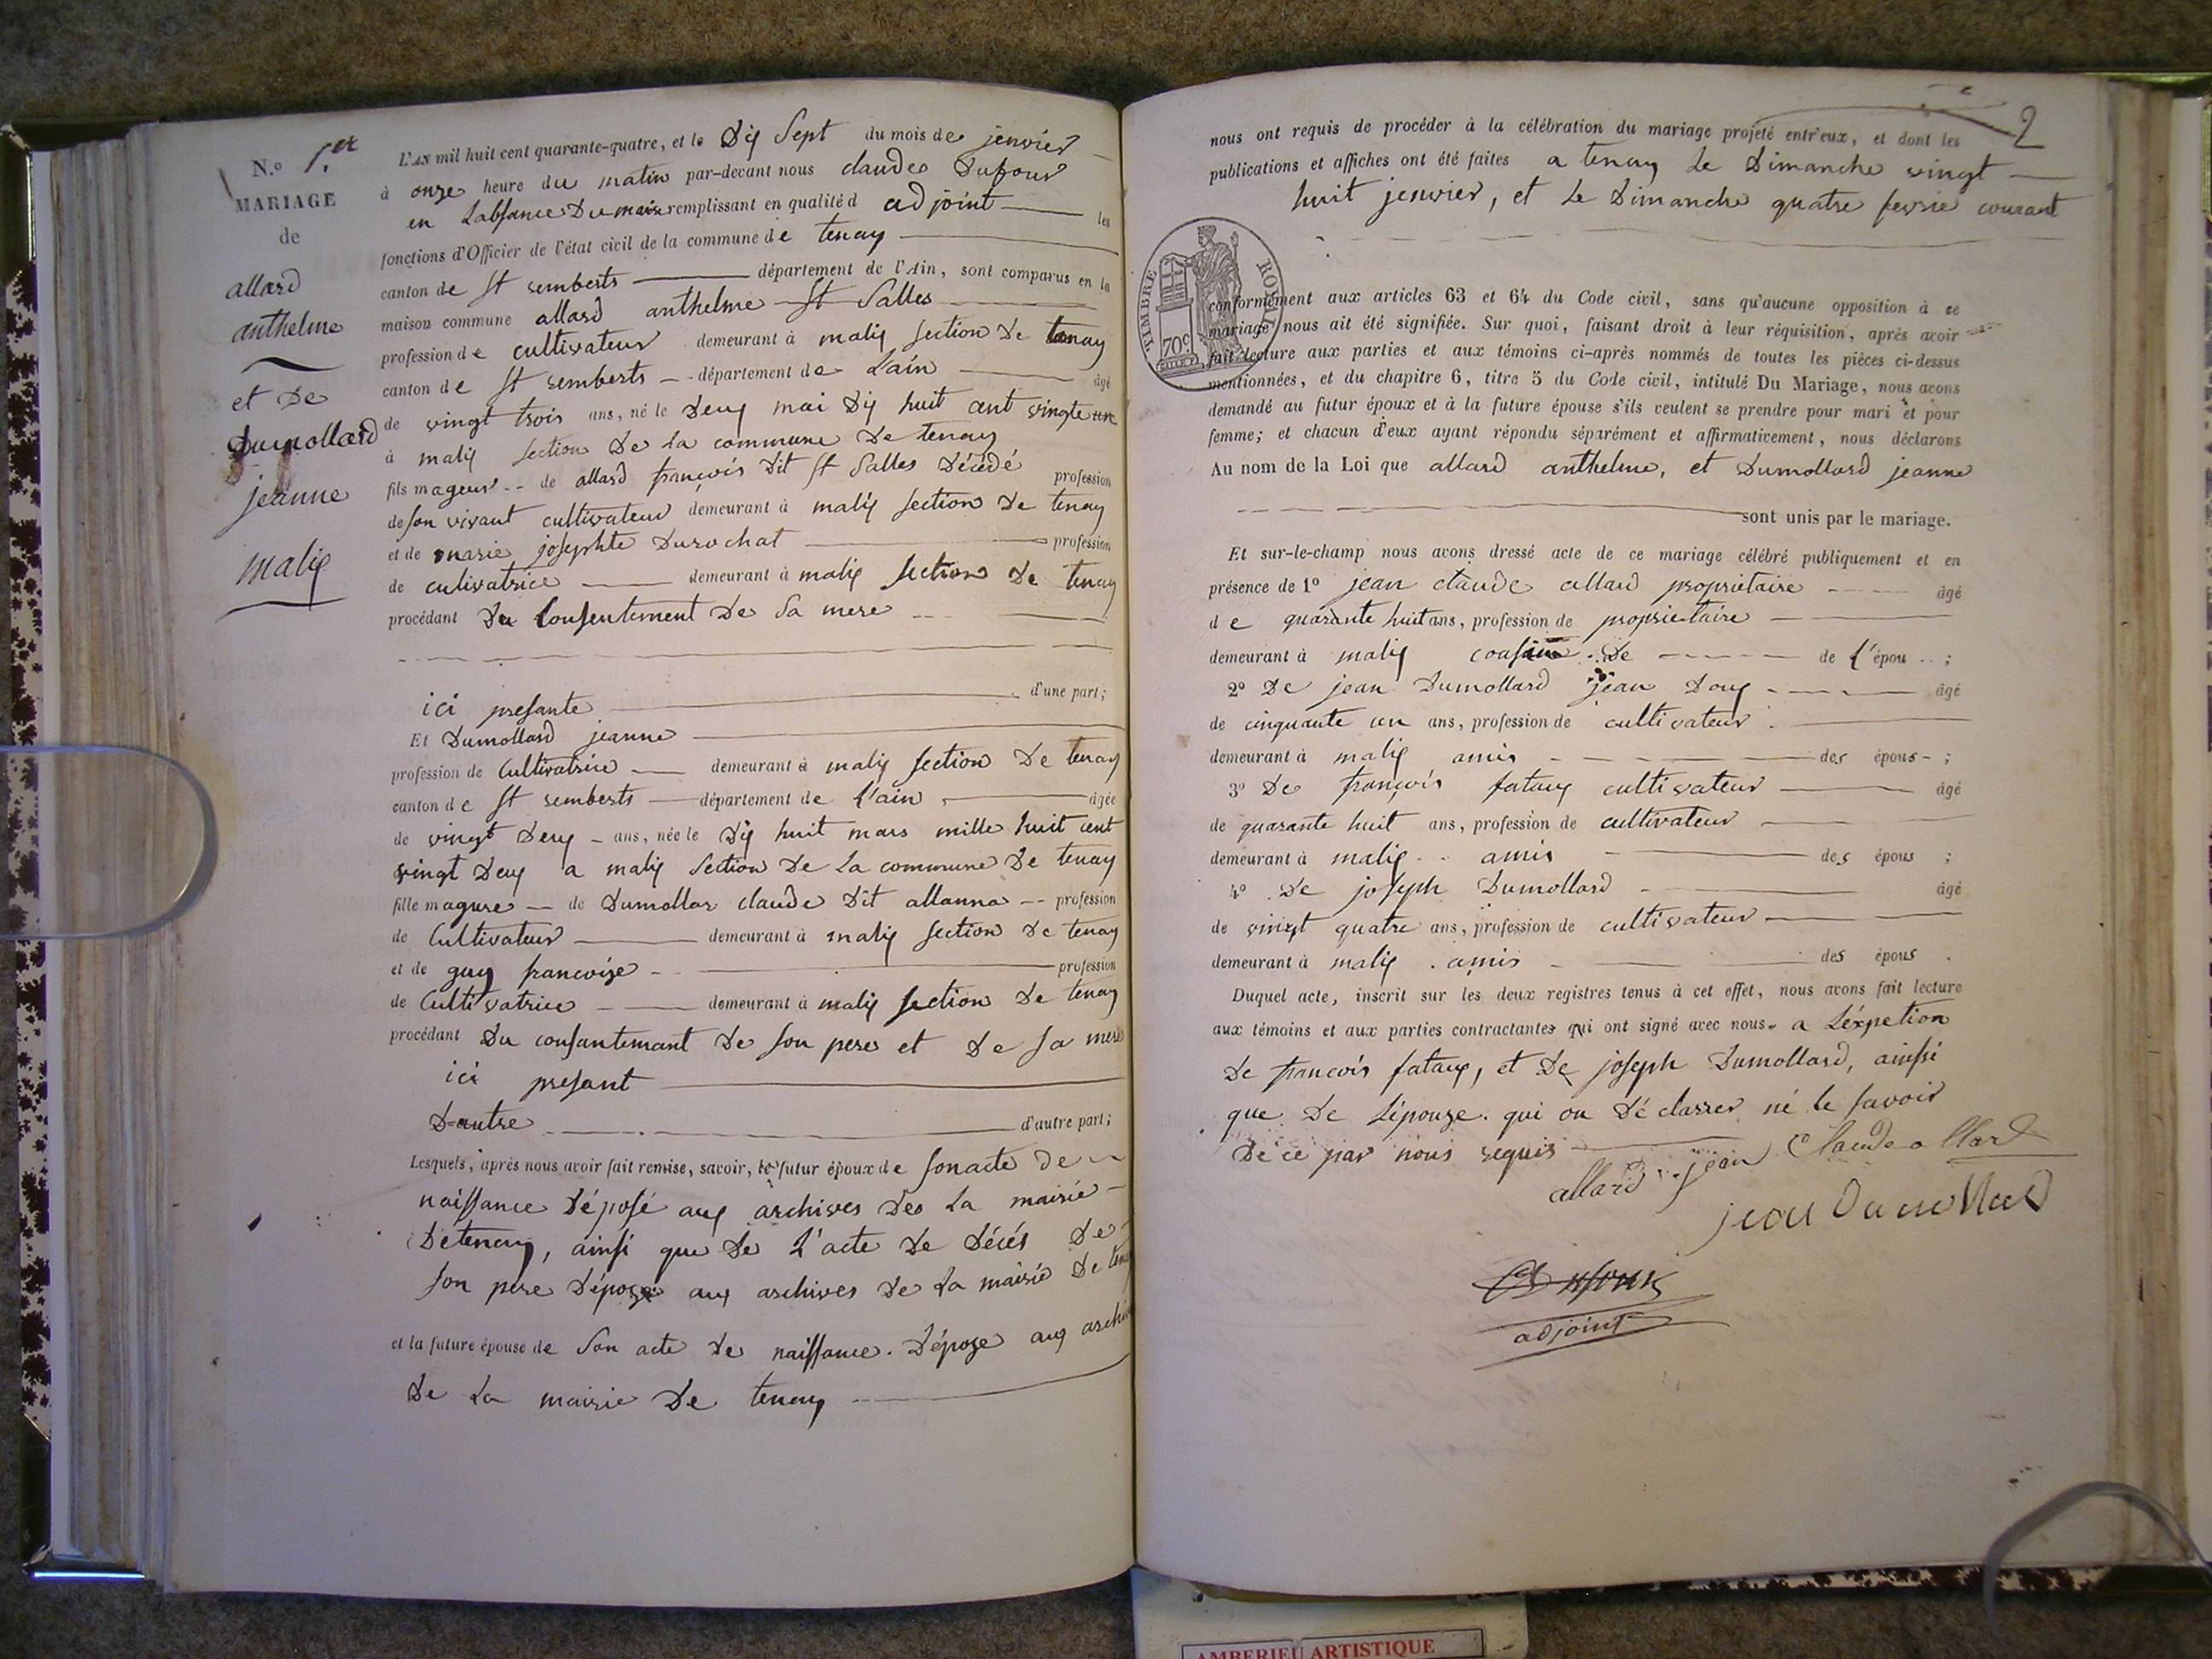 N.o 1.er
MARIAGE
de
allard
anthelme
et De
Dumollard
jeanne
malix
L'AN mil huit cent quarante-quatre, et le Dix Sept du mois de jenvier
à onze heure du matin par-devant nous claude Dufour
en Labsance Du maire remplissant en qualité d adjoint les
fonctions d'Officier de l'état civil de la commune de tenay
canton de Stremberts département de l'Ain, sont comparus en la
maison commune allard anthelme St Salles
profession de cultivateur demeurant à malix section De tenay
canton de St remberts département de Lain âgé
de vingt trois ans, né le Deux mai Dix huit cent vingte un
à malix Section De La commune De tenay
fils mageur de allard françois Dit St Salles Décédé profession
de son vivant cultivateur demeurant à malix section De tenay
et de marie josephte Durochat profession
de culivatrice demeurant à malix Section De tenay
procédant Du Consentement De Sa mere
ici presante d'une part;
Et Dumollard jeanne
profession de Cultivatrice demeurant à malix section De tenay
canton de St remberts département de l'ain âgée
de vingt Deux ans, née le Dix huit mars mille huit cent
vingt Deux a malix Section De La commune De tenay
fille magure de Dumollar claude Dit allanna profession
de Cultivateur demeurant à malix section De tenay
et de guy francoize profession
de Cultivatrice demeurant à malix section De tenay
procédant Du consantemant De son pere et De sa mere
ici presant
D=autre d'autre part;
Lesquels, après nous avoir fait remise, savoir, le futur époux de son acte De
naissance Déposé aux archives Des La mairie
De tenay, ainsi que De L'acte De Décés De
son pere Dépozé aux archives De La mairie De
et la future épouse de Son acte De naissance. Dépoze aux
De La mairie De tenay
2
nous ont requis de procéder à la célébration du mariage projeté entr'eux, et dont les
publications et affiches ont été faites a tenay Le Dimanche vingt
huit jenvier, et Le Dimanche quatre fevrie courant
TIMBRE ROYAL
70c
conformément aux articles 63 et 64 du Code civil, sans qu'aucune opposition à ce
mariage nous ait été signifiée. Sur quoi, faisant droit à leur réquisition, après avoir
fait lecture aux parties et aux témoins ci-après nommés de toutes les pièces ci-dessus
mentionnées, et du chapitre 6, titre 5 du Code civil, intitulé Du Mariage, nous avons
demandé au futur époux et à la future épouse s'ils veulent se prendre pour mari et pour
femme; et chacun d'eux ayant répondu séparément et affirmativement, nous déclarons
Au nom de la Loi que allard anthelme, et Dumollard jeanne
sont unis par le mariage.
Et sur-le-champ nous avons dressé acte de ce mariage célébré publiquement et en
présence de 1o jean claude allard proprietaire âgé
de quarante huit ans, profession de proprietaire
demeurant à malix cousin De de l'épou ;
2o De jean Dumollard jean Doux âgé
de cinquante un ans, profession de cultivateur
demeurant à malix amis des épous ;
3o De françois fataux cultivateur âgé
de quarante huit ans, profession de cultivateur
demeurant à malix amis des épous ;
4o De joseph Dumollard âgé
de vingt quatre ans, profession de cultivateur
demeurant à malix . amis des épous .
Duquel acte, inscrit sur les deux registres tenus à cet effet, nous avons fait lecture
aux témoins et aux parties contractantes qui ont signé avec nous. a Léxpetion
De francois fataux, et De joseph Dumollard, ainssi
que De Lépouze. qui on Dé clarrer né le savoir
De ce par nous requis
allard jean Claude allard
jean Dumollard
Dufour
adjoint
AMBERIEU ARTISTIQUE